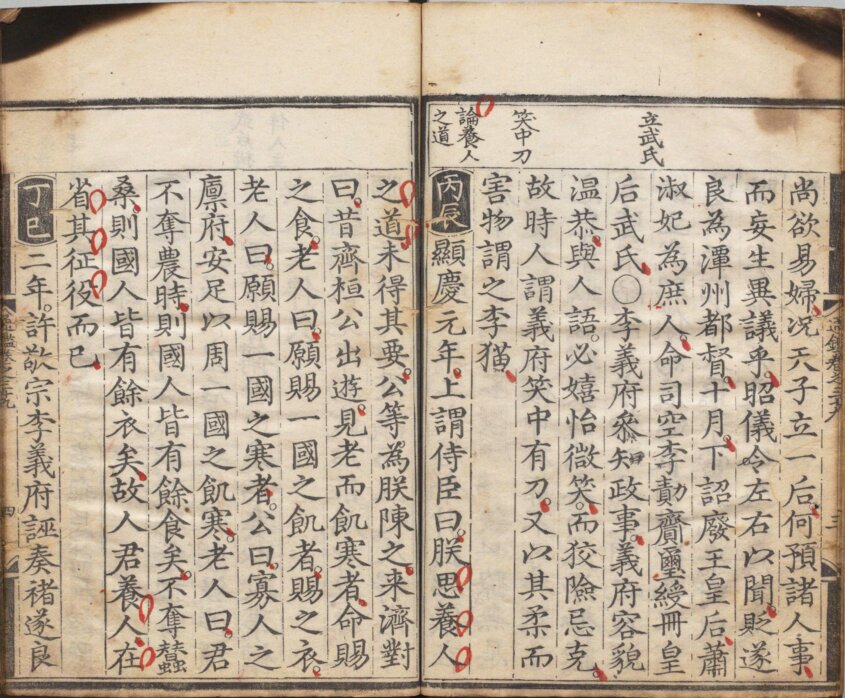 立武氏
笑中刀
論養人
之道
尚欲易婦況天子立一后何預諸人事
而妄生異議乎昭儀令左右以聞貶遂
良為潭州都督十月下詔廢王皇后蕭
淑妃為庶人命司空李勣齎璽綬冊皇
后武氏〇李義府叅知政事義府容貌
温恭與人語必嬉怡微笑而狡險忌克
故時人謂義府笑中有刀又以其柔而
害物謂之李猫
丙辰顯慶元年上謂侍臣曰朕思養人
之道未得其要公等為朕陳之来濟對
曰昔齊桓公出遊見老而飢寒者命賜
之食老人曰願賜一國之飢者賜之衣
老人曰願賜一國之寒者公曰寡人之
廪府安足以周一國之飢寒老人曰君
不奪農時則國人皆有餘食矣不奪蠶
桑則國人皆有餘衣矣故人君養人在
省其征役而已
丁巳二年許敬宗李義府誣奏褚遂良
三
四